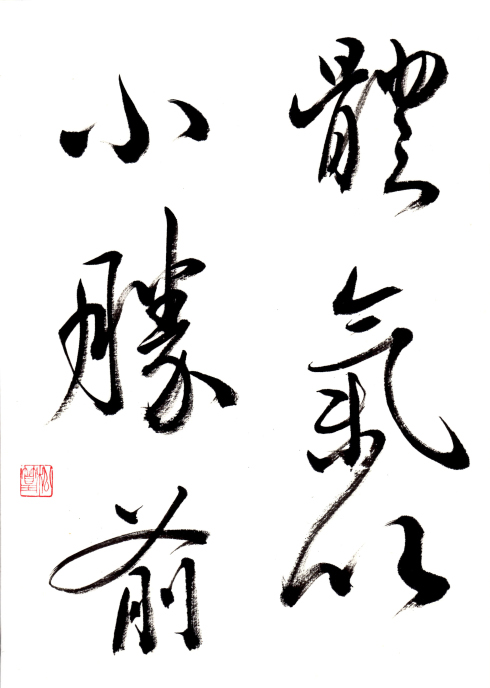 體氣以
小勝前